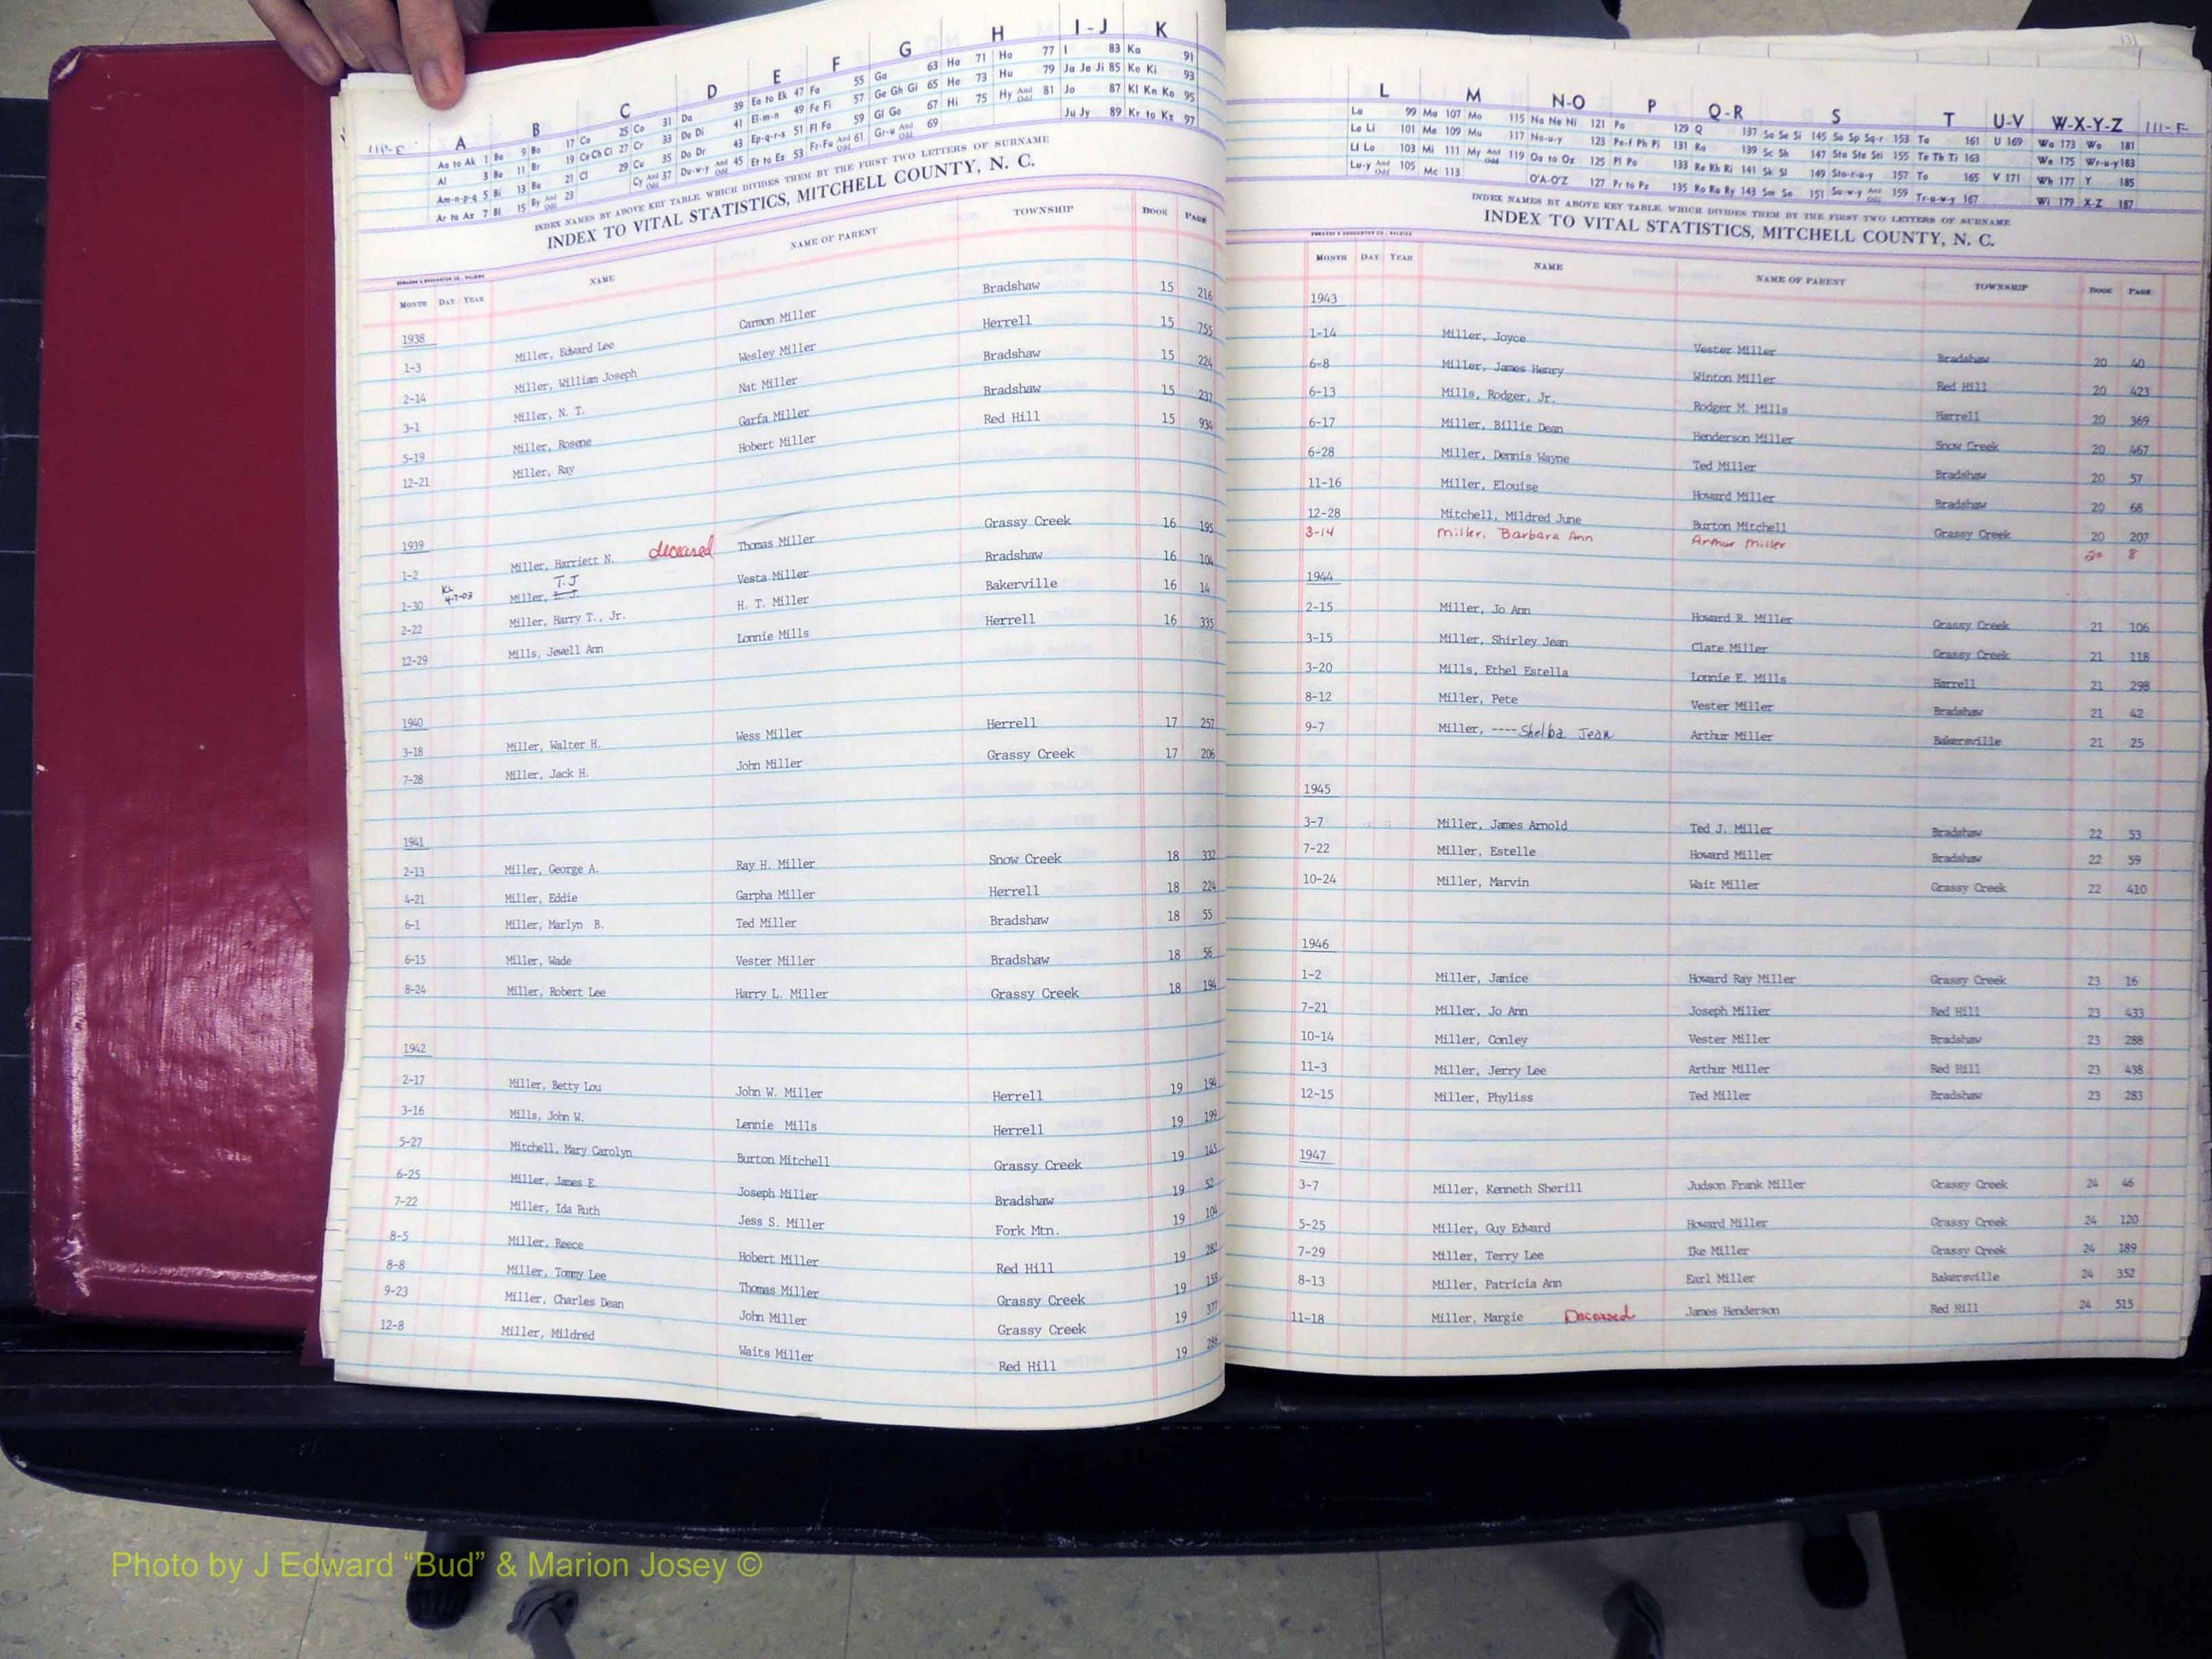 A B C D E F G H I-J K
Aa to Ak 1 Ba 9 Bo 17 Ca 25 Co 31 Da 39 Ea to Ek 47 Fa 55 Ga 63 Ha 71 Ho 77 I 83 Ka 91
Al 3 Be 11 Br 19 Ce Ch Ci 27 Cr 33 De Di 41 El-m-n 49 Fe Fi 57 Ge Gh Gi 65 He 73 Hu 79 Ja Je Ji 85 Ke Ki 93
Am-n-p-q 5 Bi 13 Bu 21 Cl 29 Cu 35 Do Dr 43 Ep-q-r-s 51 Fl Fo 59 Gl Go 67 Hi 75 Hy And Odd 81 Jo 87 Kl Kn Ko 95
Ar to Az 7 Bl 15 By And Odd 23 Cy And Odd 37 Du-w-y And Odd 45 Et to Ez 53 Fr-Fu And Odd 61 Gr-u And Odd 69 Ju Jy 89 Kr to Kz 97
INDEX NAMES BY ABOVE KEY TABLE, WHICH DIVIDES THEM BY THE FIRST TWO LETTERS OF SURNAME
INDEX TO VITAL STATISTICS, MITCHELL COUNTY, N. C.
MONTH DAY YEAR NAME NAME OF PARENT TOWNSHIP BOOK PAGE
1938
1-3 Miller, Edward Lee Carmon Miller Bradshaw 15 216
2-14 Miller, William Joseph Wesley Miller Herrell 15 755
3-1 Miller, N. T. Nat Miller Bradshaw 15 224
5-19 Miller, Rosene Garfa Miller Bradshaw 15 237
12-21 Miller, Ray Hobert Miller Red Hill 15 934
1939
1-2 Miller, Harriett N. deceased Thomas Miller Grassy Creek 16 195
KL 4-7-03
1-30 Miller, T.J Vesta Miller Bradshaw 16 104
2-22 Miller, Harry T., Jr. H. T. Miller Bakerville 16 14
12-29 Mills, Jewell Ann Lonnie Mills Herrell 16 335
1940
3-18 Miller, Walter H. Wess Miller Herrell 17 257
7-28 Miller, Jack H. John Miller Grassy Creek 17 206
1941
2-13 Miller, George A. Ray H. Miller Snow Creek 18 332
4-21 Miller, Eddie Garpha Miller Herrell 18 224
6-1 Miller, Marlyn B. Ted Miller Bradshaw 18 55
6-15 Miller, Wade Vester Miller Bradshaw 18 56
8-24 Miller, Robert Lee Harry L. Miller Grassy Creek 18 194
1942
2-17 Miller, Betty Lou John W. Miller Herrell 19 194
3-16 Mills, John W. Lennie Mills Herrell 19 199
5-27 Mitchell, Mary Carolyn Burton Mitchell Grassy Creek 19 145
6-25 Miller, James E. Joseph Miller Bradshaw 19 52
7-22 Miller, Ida Ruth Jess S. Miller Fork Mtn. 19 104
8-5 Miller, Reece Hobert Miller Red Hill 19
8-8 Miller, Tommy Lee Thomas Miller Grassy Creek 19
9-23 Miller, Charles Dean John Miller Grassy Creek 19 377
12-8 Miller, Mildred Waits Miller Red Hill 19
L M N-O P Q-R S T U-V W-X-Y-Z
La 99 Ma 107 Mo 115 Na Ne Ni 121 Pa 129 Q 137 Sa Se Si 145 So Sp Sq-r 153 Ta 161 U 169 Wa 173 Wo 181
Le Li 101 Me 109 Mu 117 No-u-y 123 Pe-f Ph Pi 131 Ra 139 Sc Sh 147 Sta Ste Sti 155 Te Th Ti 163 We 175 Wr-u-y 183
Ll Lo 103 Mi 111 My And Odd 119 Oa to Oz 125 Pl Po 133 Re Rh Ri 141 Sk Sl 149 Sto-r-u-y 157 To 165 V 171 Wh 177 Y 185
Lu-y And Odd 105 Mc 113 O'A-O'Z 127 Pr to Pz 135 Ro Ru Ry 143 Sm Sn 151 Su-w-y And Odd 159 Tr-u-w-y 167 Wi 179 X-Z 187
INDEX NAMES BY ABOVE KEY TABLE, WHICH DIVIDES THEM BY THE FIRST TWO LETTERS OF SURNAME
INDEX TO VITAL STATISTICS, MITCHELL COUNTY, N. C.
MONTH DAY YEAR NAME NAME OF PARENT TOWNSHIP BOOK PAGE
1943
1-14 Miller, Joyce Vester Miller Bradshaw 20 40
6-8 Miller, James Henry Winton Miller Red Hill 20 423
6-13 Mills, Rodger, Jr. Rodger M. Mills Harrell 20 369
6-17 Miller, Billie Dean Henderson Miller Snow Creek 20 467
6-28 Miller, Dennis Wayne Ted Miller Bradshaw 20 57
11-16 Miller, Elouise Howard Miller Bradshaw 20 68
12-28 Mitchell, Mildred June Burton Mitchell Grassy Creek 20 207
3-14 Miller, Barbara Ann Arthur Miller 20 8
1944
2-15 Miller, Jo Ann Howard R. Miller Grassy Creek 21 106
3-15 Miller, Shirley Jean Clate Miller Grassy Creek 21 118
3-20 Mills, Ethel Estella Lonnie E. Mills Herrell 21 298
8-12 Miller, Pete Vester Miller Bradshaw 21 42
9-7 Miller, ---- Shelba Jean Arthur Miller Bakersville 21 25
1945
3-7 Miller, James Arnold Ted J. Miller Bradshaw 22 53
7-22 Miller, Estelle Howard Miller Bradshaw 22 59
10-24 Miller, Marvin Wait Miller Grassy Creek 22 410
1946
1-2 Miller, Janice Howard Ray Miller Grassy Creek 23 16
7-21 Miller, Jo Ann Joseph Miller Red Hill 23 433
10-14 Miller, Conley Vester Miller Bradshaw 23 288
11-3 Miller, Jerry Lee Arthur Miller Red Hill 23 438
12-15 Miller, Phyliss Ted Miller Bradshaw 23 283
1947
3-7 Miller, Kenneth Sherill Judson Frank Miller Grassy Creek 24 46
5-25 Miller, Guy Edward Howard Miller Grassy Creek 24 120
7-29 Miller, Terry Lee Ike Miller Grassy Creek 24 189
8-13 Miller, Patricia Ann Earl Miller Bakersville 24 352
11-18 Miller, Margie Deceased James Henderson Red Hill 24 515
Photo by J Edward “Bud” & Marion Josey ©